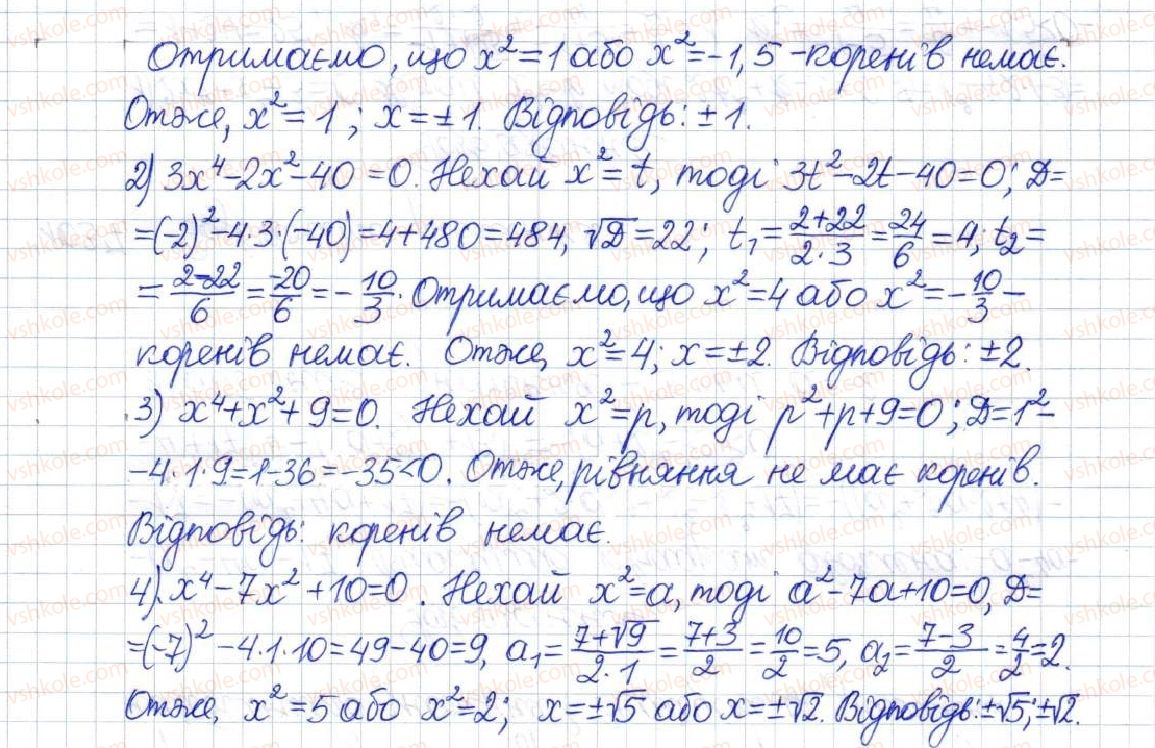 Отримаємо, що x²=1 або x²=-1,5 - коренів немає.
Отже, x²=1; x=±1. Відповідь: ±1.
2) 3x⁴-2x²-40=0. Нехай x²=t, тоді 3t²-2t-40=0; D=
=(-2)²-4·3·(-40)=4+480=484, √D=22; t₁=(2+22)/(2·3)=24/6=4; t₂=
=(2-22)/6=-20/6=-10/3. Отримаємо, що x²=4 або x²=-10/3 -
коренів немає. Отже, x²=4; x=±2. Відповідь: ±2.
3) x⁴+x²+9=0. Нехай x²=p, тоді p²+p+9=0; D=1²-
-4·1·9=1-36=-35<0. Отже, рівняння не має коренів.
Відповідь: коренів немає.
4) x⁴-7x²+10=0. Нехай x²=a, тоді a²-7a+10=0, D=
=(-7)²-4·1·10=49-40=9, a₁=(7+√9)/(2·1)=(7+3)/2=10/2=5, a₂=(7-3)/2=4/2=2.
Отже, x²=5 або x²=2; x=±√5 або x=±√2. Відповідь: ±√5; ±√2.
vshkole.com